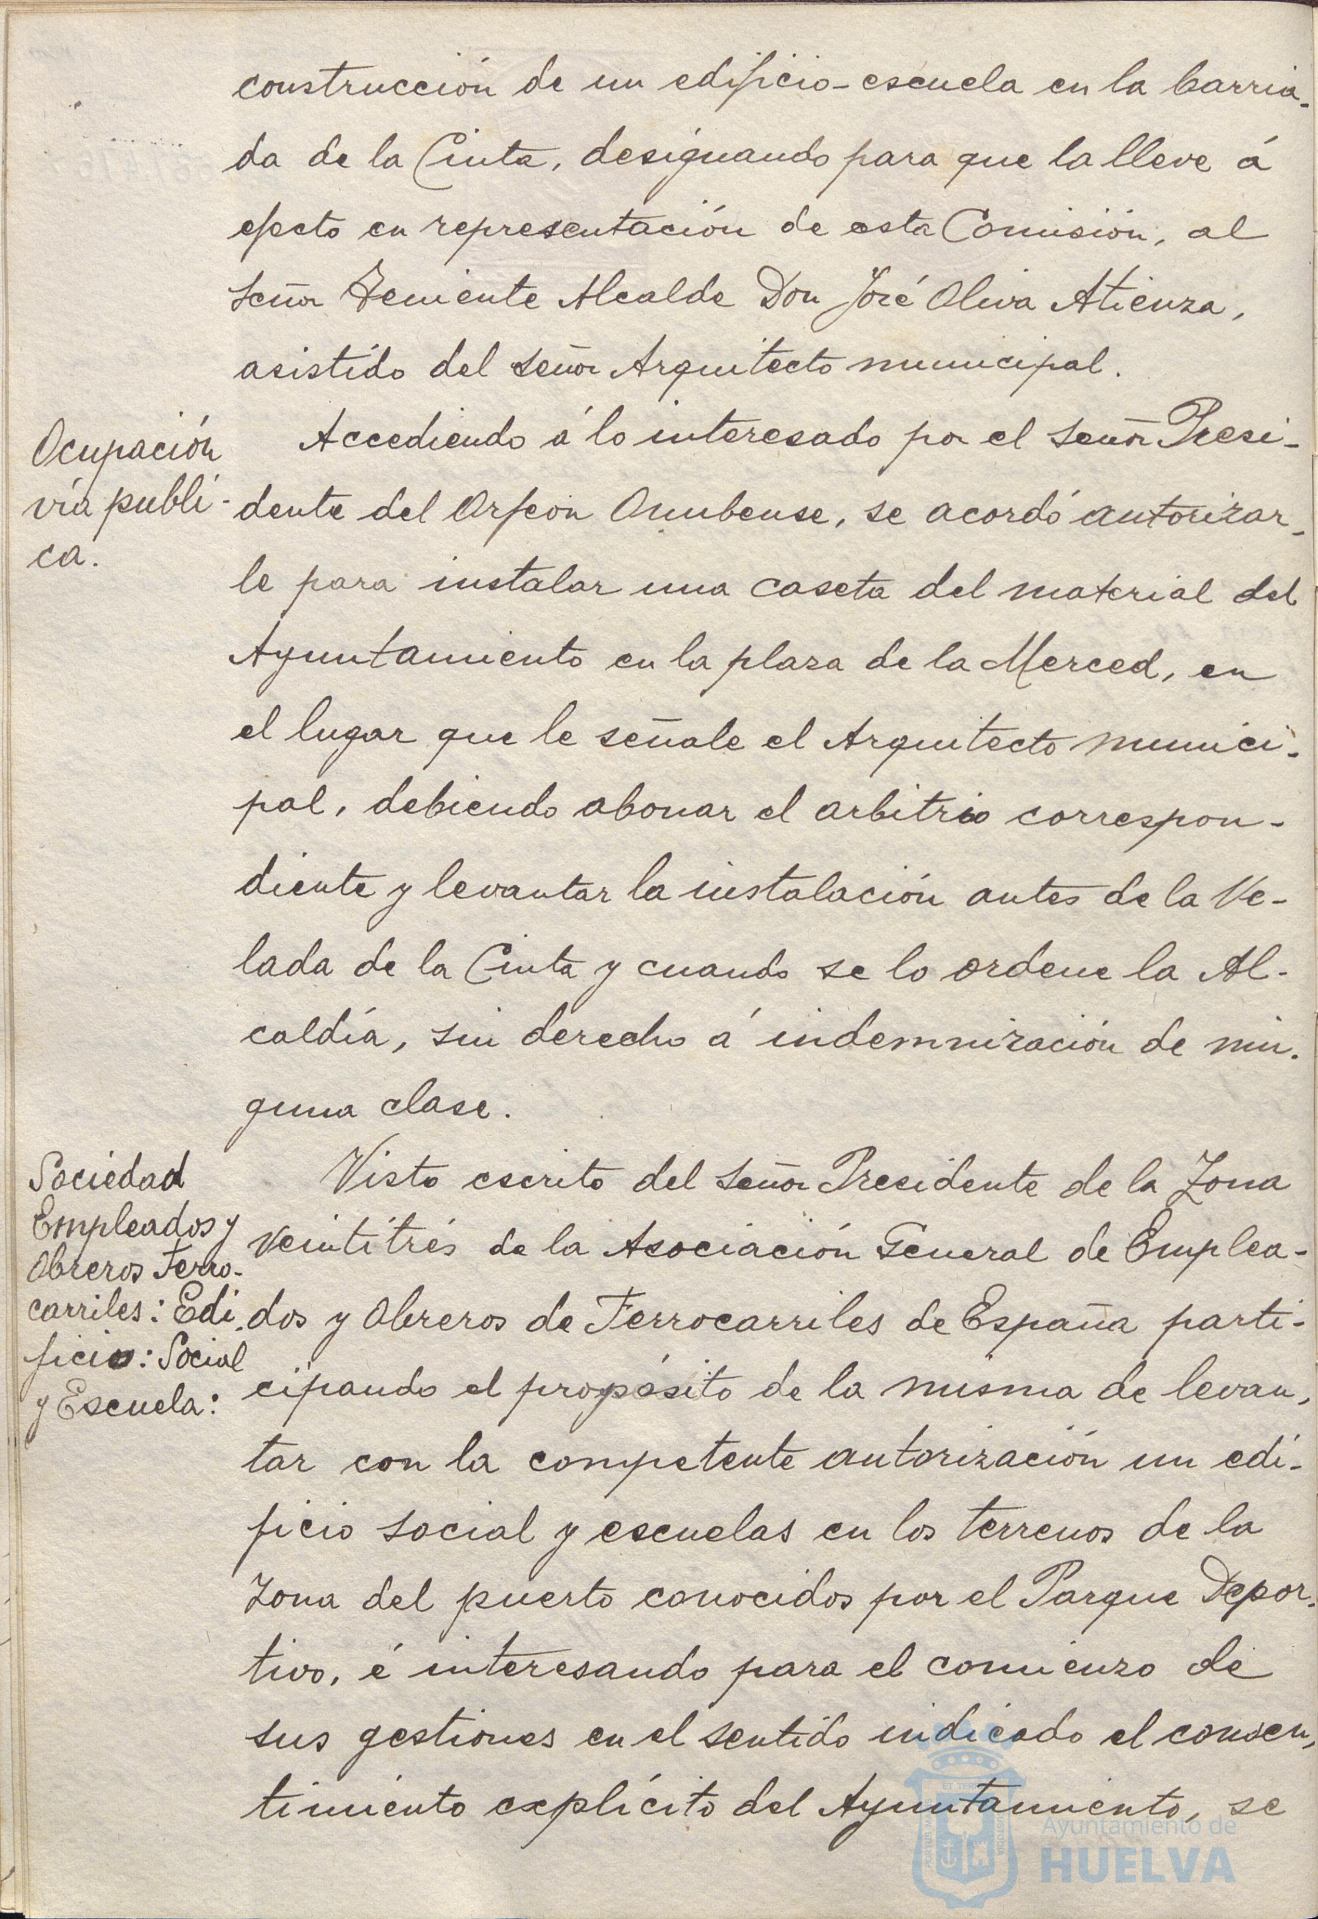 construcción de un edificio-escuela en la barria-
da de la Cinta, designando para que la lleve á
efecto en representación de esta Comisión, al
señor Teniente Alcalde Don José Oliva Atienza,
asistido del señor Arquitecto municipal.
Ocupación
vía públi-
ca.
Accediendo á lo interesado por el señor Presi-
dente del Orfeón Onubense, se acordó autorizar-
le para instalar una caseta del material del
Ayuntamiento en la plaza de la Merced, en
el lugar que le señale el Arquitecto munici-
pal, debiendo abonar el arbitrio correspon-
diente y levantar la instalación antes de la Ve-
lada de la Cinta y cuando se lo ordene la Al-
caldía, sin derecho á indemnización de nin-
guna clase.
Sociedad
Empleados y
Obreros Ferro-
carriles: Edi-
ficio: Social
y Escuela:
Visto escrito del señor Presidente de la Zona
veintitrés de la Asociación General de Emplea-
dos y Obreros de Ferrocarriles de España parti-
cipando el propósito de la misma de levan-
tar con la competente autorización un edi-
ficio social y escuelas en los terrenos de la
Zona del puerto conocidos por el Parque Depor-
tivo, é interesando para el comienzo de
sus gestiones en el sentido indicado el consen-
timiento explícito del Ayuntamiento, se
Ayuntamiento de
HUELVA